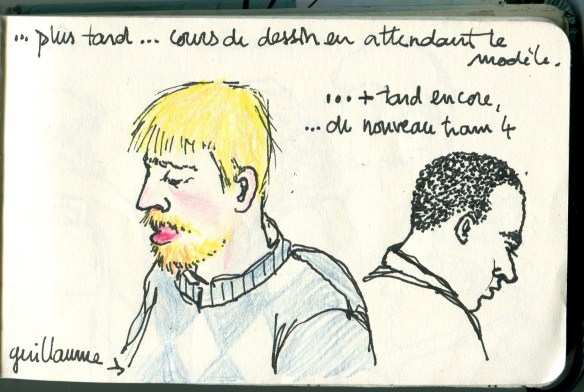 ... plus tard ... cours de dessin en attendant le
modèle.
... + tard encore,
... du nouveau tram 4
guillaume